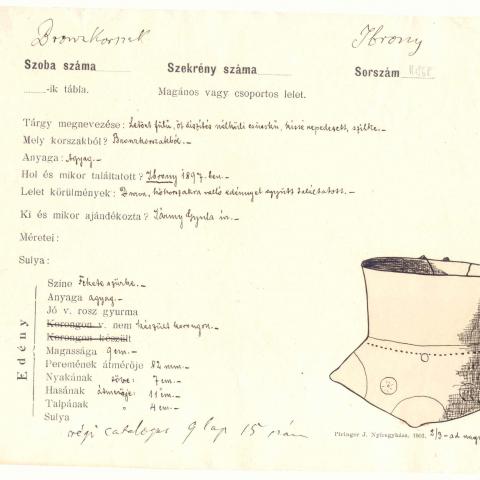 Bronzkorszak Ibrony
Szoba száma Szekrény száma Sorszám
-ik tábla. Magános vagy csoportos lelet.
Tárgy megnevezése: Letört fülű, öt díszítés nélküli csücskű, kissé repedezett, szilke.-
Mely korszakból? Bronzkorszakból.-
Anyaga: Agyag.-
Hol és mikor találtatott? Ibrony 1897.ben.-
Lelet körülmények: edénnyel együtt találtatott.-
Ki és mikor ajándékozta? Gyula úr.-
Méretei:
Sulya:
Edény
Szine Fekete szürke.-
Anyaga agyag.-
Jó v. rosz gyurma
Korongon v. nem készült korongon.-
Korongon készült
Magassága 9 cm.-
Peremének átmérője 82 mm.-
Nyakának töve: 7 cm.-
Hasának átmérője: 11 cm.-
Talpának " 4 cm.-
Sulya
régi catalogus 9 lap 15 szám
Piringer J. Nyiregyháza, 1902. 2/3-ad nagy